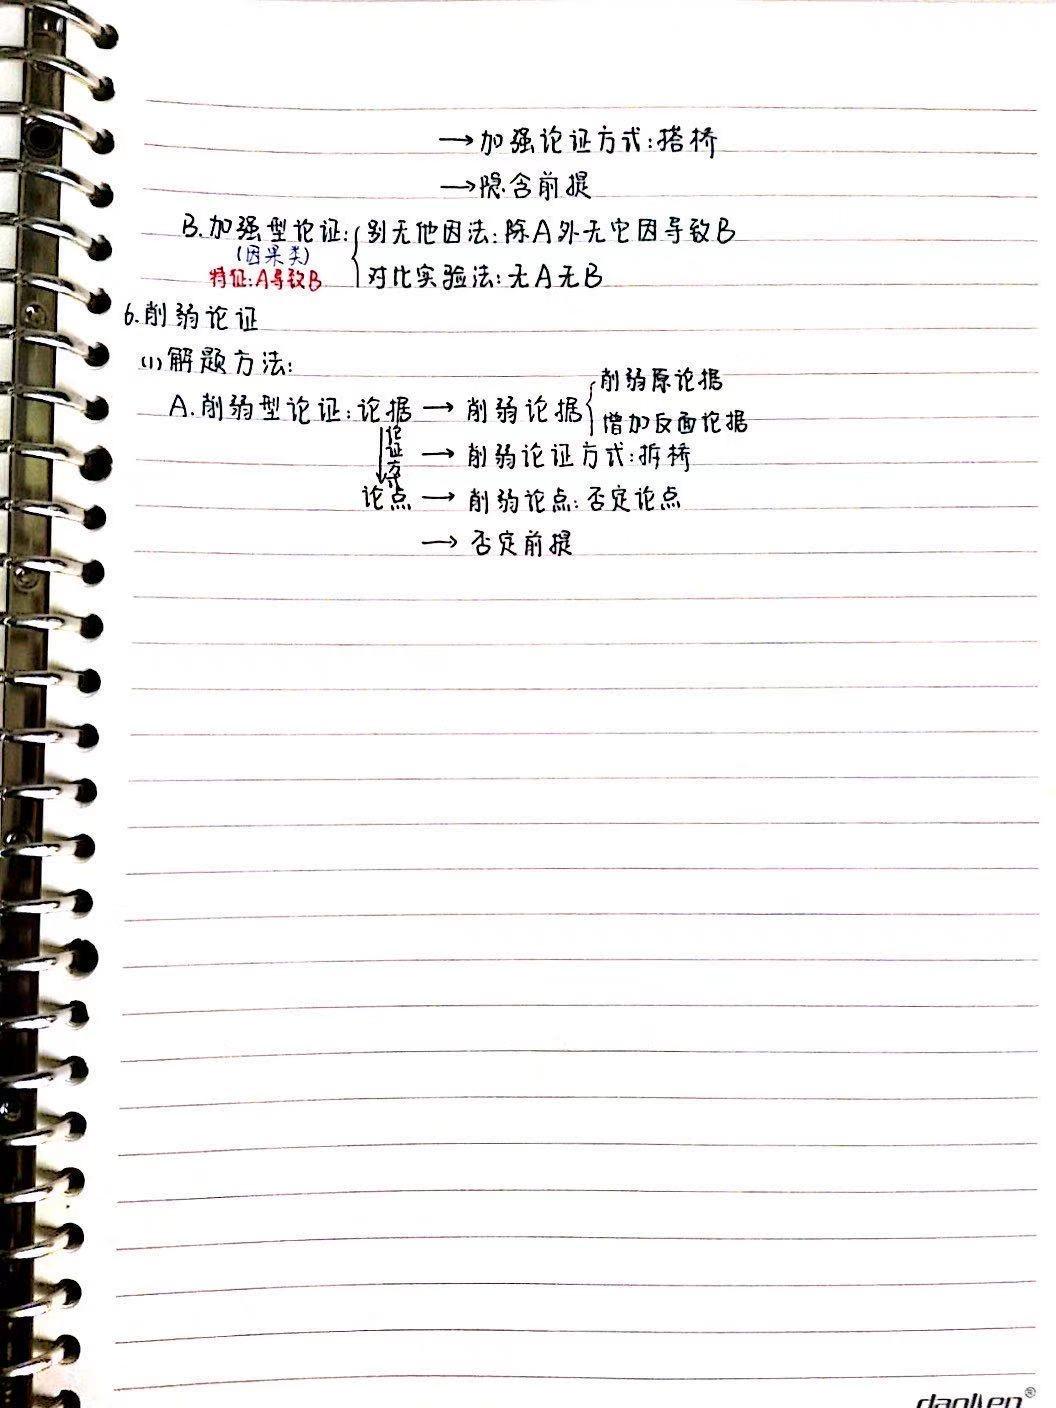 →加强论证方式:搭桥
→隐含前提
B.加强型论证:{别无他因法:除A外无它因导致B
(因果类)
特征:A导致B
对比实验法:无A无B
6.削弱论证
(1)解题方法:
削弱原论据
A.削弱型论证:论据→削弱论据{
增加反面论据
论证方式
→削弱论证方式:拆桥
论点→削弱论点:否定论点
→否定前提